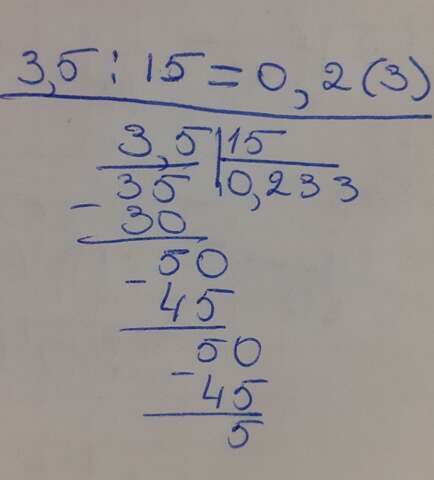 3,5 : 15 = 0, 2 (3)
3,5 | 15
35 | 0,233
- 30
50
- 45
50
- 45
5